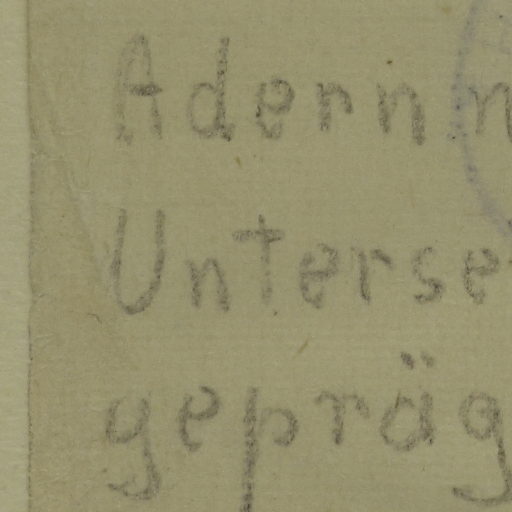 Adern n
Unterse
gepräg